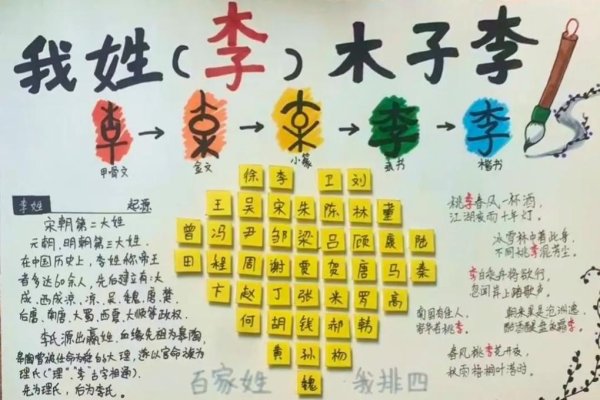 我姓(李)木子李
甲骨文 → 金文 → 小篆 → 隶书 → 楷书
李
李
徐 李 卫 刘
王 吴 宋 朱 陈 林 董
曾 冯 尹 邹 梁 吕 顾 晨 陆
田 程 周 谢 贾 贺 唐 马 秦
卞 赵 丁 张 米 罗 高
何 胡 钱 郝 韩
黄 孙 杨
魏
百家姓 我排四
李姓 起源
宋朝第二大姓
元朝,明朝第三大姓.
在中国历史上,李姓称帝王
者多达60余人,先后建立有:大
成、西成凉、凉、吴、魏、唐、楚
后唐、南唐、大蜀、西夏、大顺等政权.
李氏源出嬴姓,血缘先祖为皋陶,
理氏("理"、"李"古字相通).
先为理氏,后为李氏.
桃李春风一杯酒,
江湖夜雨十年灯.
冰雪林中著此身,
不同桃李混芳尘;
李白乘舟将欲行,
忽闻岸上踏歌声.
南国有佳人,
容华若桃李.
春风桃李花开夜,
秋雨梧桐叶落时.